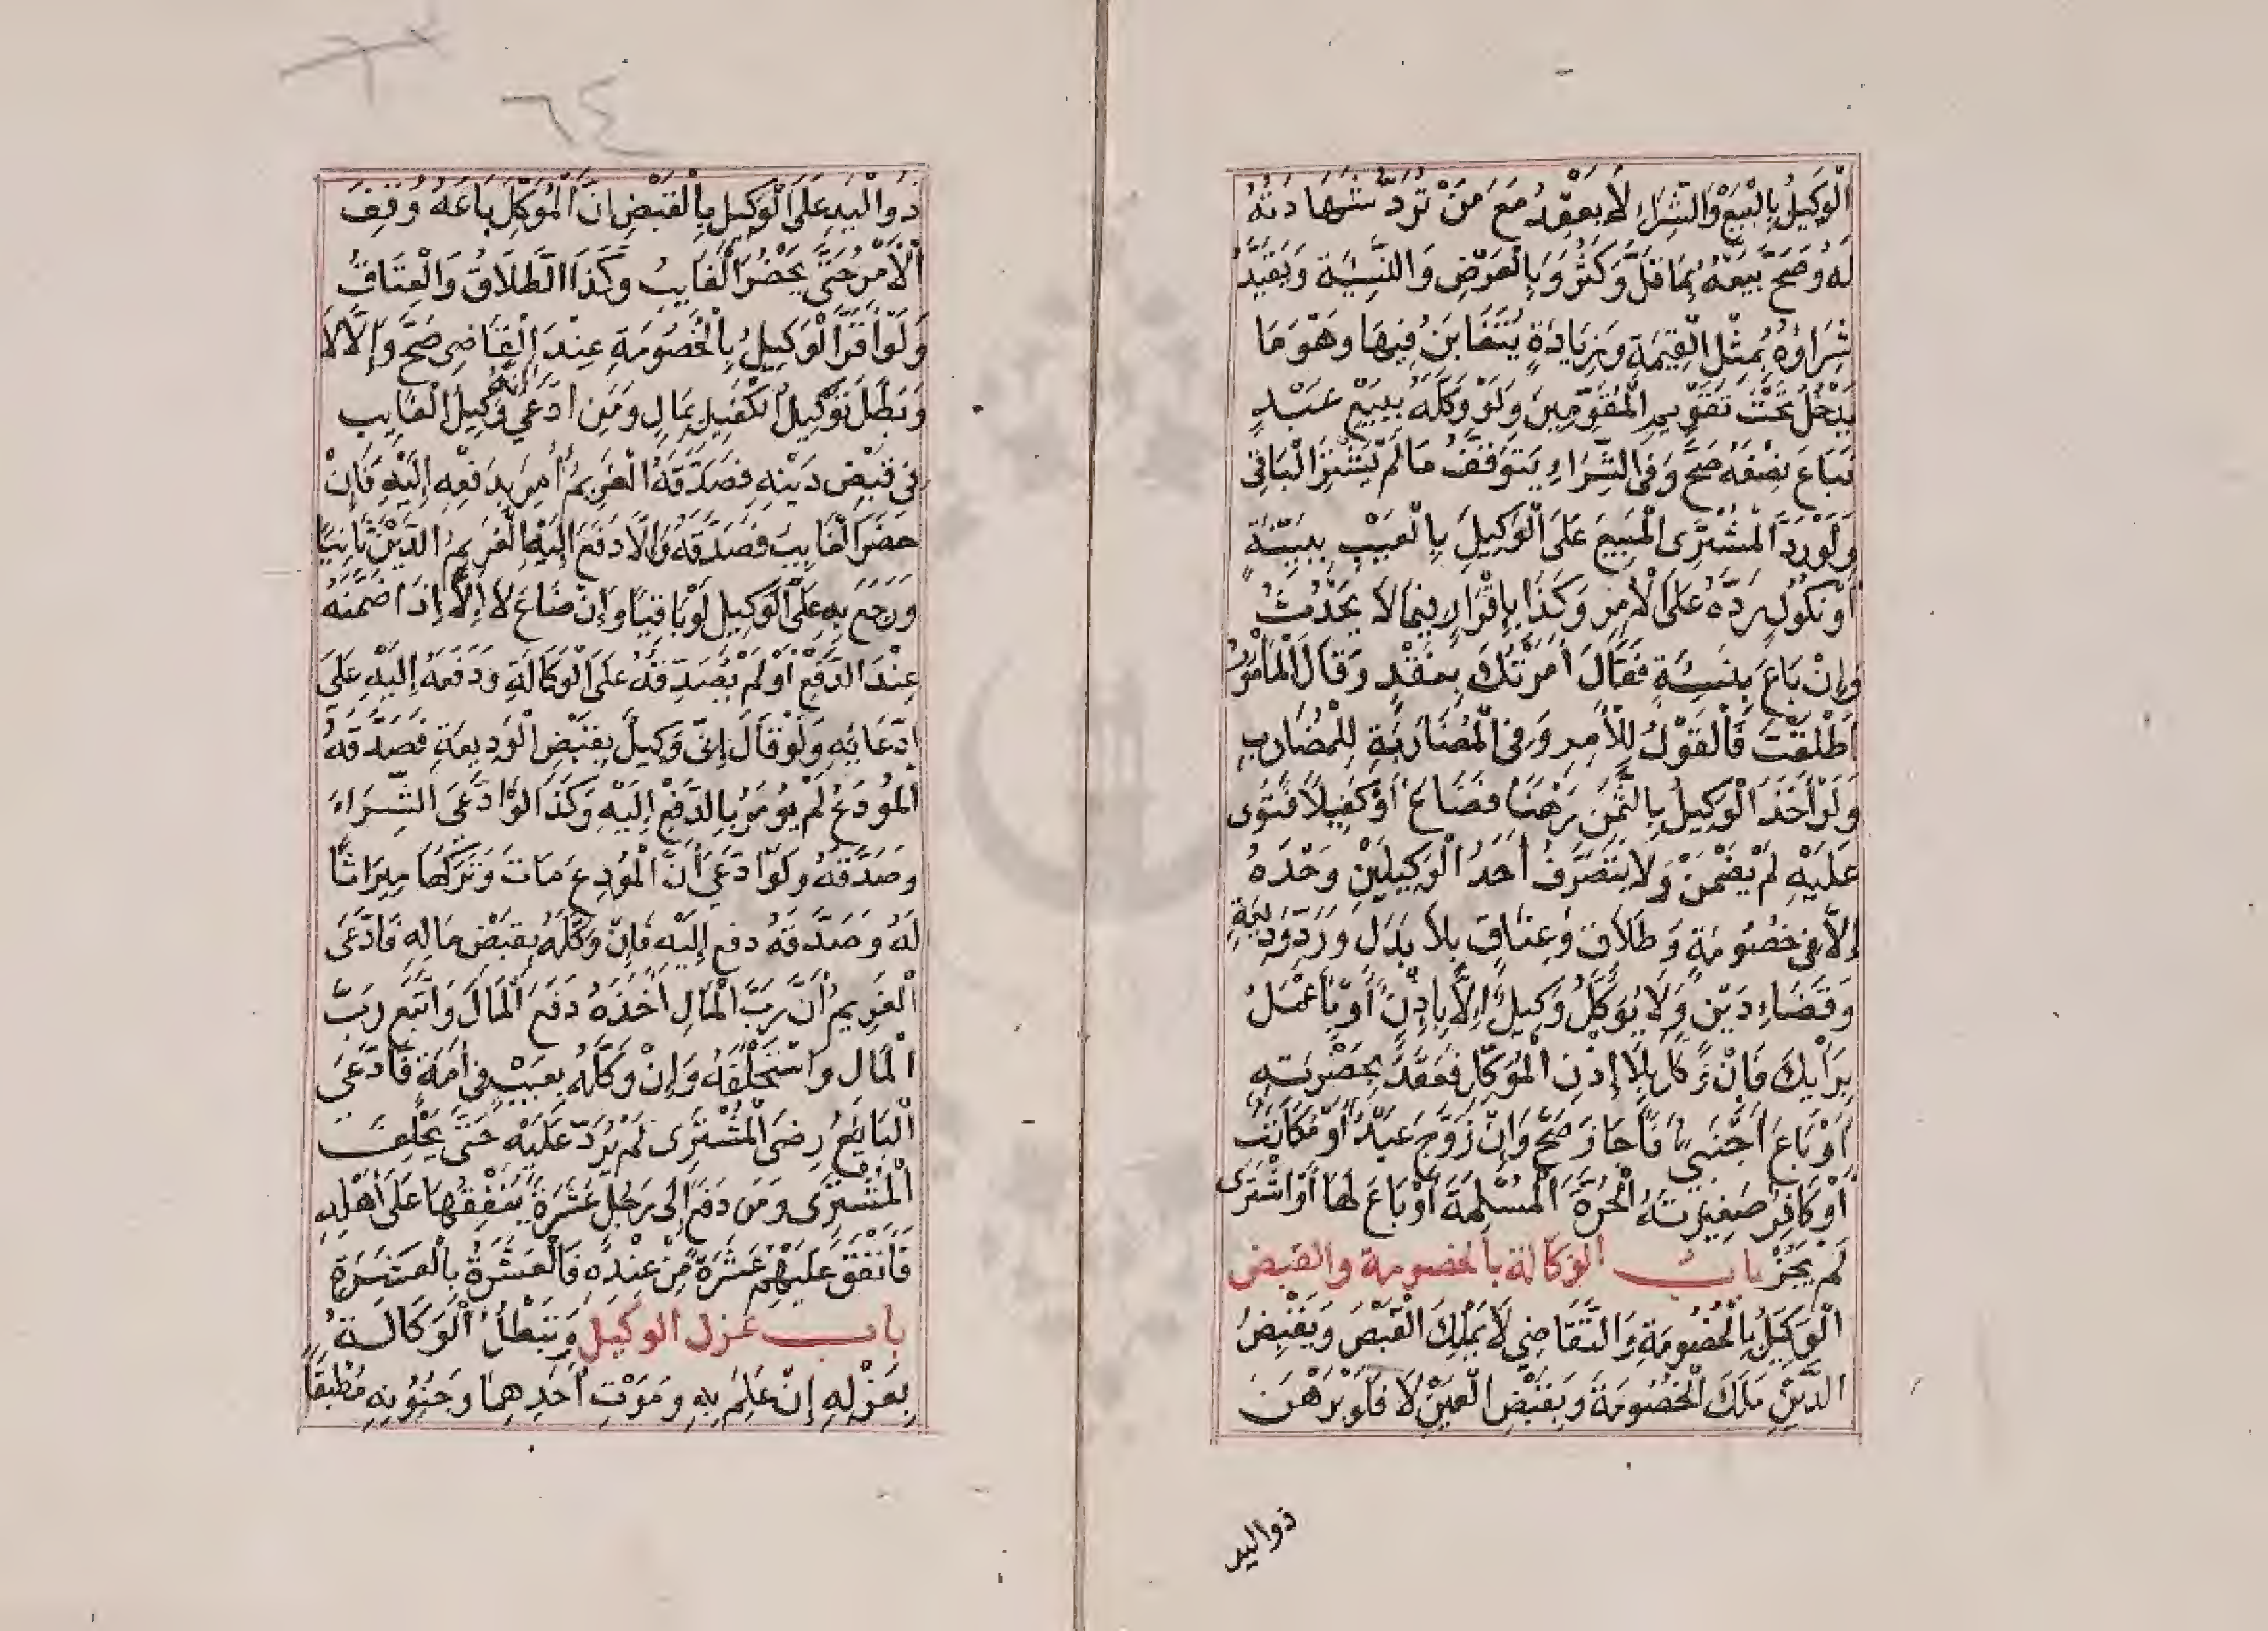 الْوَكِيلُ بِالْبَيْعِ وَالشِّرَاءِ لَا يَعْقِدُ مَعَ مَنْ تُرَدُّ شَهَادَتُهُ
لَهُ وَصَحَّ بَيْعُهُ بِمَا قَلَّ وَكَثُرَ وَبِالْعَرْضِ وَالنَّسِيئَةِ وَيُقَيَّدُ
شِرَاؤُهُ بِمِثْلِ الْقِيمَةِ وَبِزِيَادَةٍ يُتَغَابَنُ فِيهَا وَهُوَ مَا
يَدْخُلُ تَحْتَ تَقْوِيمِ الْمُقَوِّمِينَ وَلَوْ وَكَّلَهُ بِبَيْعِ عَبْدٍ
فَبَاعَ نِصْفَهُ صَحَّ وَفِي الشِّرَاءِ يَتَوَقَّفُ مَا لَمْ يَشْتَرِ الْبَاقِي
وَلَوْ رَدَّ الْمُشْتَرِي الْمَبِيعَ عَلَى الْوَكِيلِ بِالْعَيْبِ بِبَيِّنَةٍ
أَوْ نُكُولٍ رَدَّهُ عَلَى الْآمِرِ وَكَذَا بِإِقْرَارٍ فِيمَا لَا يَحْدُثُ
وَإِنْ بَاعَ بِنَسِيئَةٍ فَقَالَ أَمَرْتُكَ بِنَقْدٍ وَقَالَ الْمَأْمُورُ
أَطْلَقْتَ فَالْقَوْلُ لِلْآمِرِ وَفِي الْمُضَارَبَةِ لِلْمُضَارِبِ
وَلَوْ أَخَذَ الْوَكِيلُ بِالثَّمَنِ رَهْنًا فَضَاعَ أَوْ كَفِيلًا فَتَوَى
عَلَيْهِ لَمْ يَضْمَنْ وَلَا يَتَصَرَّفُ أَحَدُ الْوَكِيلَيْنِ وَحْدَهُ
إِلَّا فِي خُصُومَةٍ وَطَلَاقٍ وَعِتَاقٍ بِلَا بَدَلٍ وَرَدِّ وَدِيعَةٍ
وَقَضَاءِ دَيْنٍ وَلَا يُوَكِّلُ وَكِيلٌ إِلَّا بِإِذْنٍ أَوْ بِاعْمَلْ
بِرَأْيِكَ فَإِنْ وَكَّلَ بِلَا إِذْنِ الْمُوَكِّلِ فَعَقَدَ بِحَضْرَتِهِ
أَوْ بَاعَ أَجْنَبِيٌّ فَأَجَازَ صَحَّ وَإِنْ زَوَّجَ عَبْدٌ أَوْ مُكَاتَبٌ
أَوْ كَافِرٌ صَغِيرَتَهُ الْحُرَّةَ الْمُسْلِمَةَ أَوْ بَاعَ لَهَا أَوِ اشْتَرَى
لَمْ يَجُزْ بابُ الوكالة بالخصومة والقبض
الْوَكِيلُ بِالْخُصُومَةِ وَالتَّقَاضِي لَا يَمْلِكُ الْقَبْضَ وَبِقَبْضِ
الدَّيْنِ مَلَكَ الْخُصُومَةَ وَبِقَبْضِ الْعَيْنِ لَا فَلَوْ بَرْهَنَ
ذو اليد
٦٤
ذُو الْيَدِ عَلَى الْوَكِيلِ بِالْقَبْضِ أَنَّ الْمُوَكِّلَ بَاعَهُ وُقِفَ
الْأَمْرُ حَتَّى يَحْضُرَ الْغَايِبُ وَكَذَا الطَّلَاقُ وَالْعِتَاقُ
وَلَوْ أَقَرَّ الْوَكِيلُ بِالْخُصُومَةِ عِنْدَ الْقَاضِي صَحَّ وَإِلَّا لَا
وَبَطَلَ تَوْكِيلُ الْكَفِيلِ بِمَالٍ وَمَنِ ادَّعَى أَنَّهُ وَكِيلُ الْغَايِبِ
فِي قَبْضِ دَيْنِهِ فَصَدَّقَهُ الْغَرِيمُ أُمِرَ بِدَفْعِهِ إِلَيْهِ فَإِنْ
حَضَرَ الْغَايِبُ فَصَدَّقَهُ وَإِلَّا دَفَعَ إِلَيْهِ الْغَرِيمُ الدَّيْنَ ثَانِيًا
وَرَجَعَ بِهِ عَلَى الْوَكِيلِ لَوْ بَاقِيًا وَإِنْ ضَاعَ لَا إِلَّا إِذَا ضَمَّنَهُ
عِنْدَ الدَّفْعِ أَوْ لَمْ يُصَدِّقْهُ عَلَى الْوَكَالَةِ وَدَفَعَهُ إِلَيْهِ عَلَى
ادِّعَائِهِ وَلَوْ قَالَ إِنِّي وَكِيلٌ بِقَبْضِ الْوَدِيعَةِ فَصَدَّقَهُ
الْمُودَعُ لَمْ يُؤْمَرْ بِالدَّفْعِ إِلَيْهِ وَكَذَا لَوِ ادَّعَى الشِّرَاءَ
وَصَدَّقَهُ وَلَوِ ادَّعَى أَنَّ الْمُودِعَ مَاتَ وَتَرَكَهَا مِيرَاثًا
لَهُ وَصَدَّقَهُ دفع إِلَيْهِ فَإِنْ وَكَّلَهُ بِقَبْضِ مَالِهِ فَادَّعَى
الْغَرِيمُ أَنَّ رَبَّ الْمَالِ أَخَذَهُ دَفَعَ الْمَالَ وَاتَّبَعَ رَبَّ
الْمَالِ وَاسْتَحْلَفَهُ وَإِنْ وَكَّلَهُ بِعَيْبٍ فِي أَمَةٍ فَادَّعَى
الْبَايِعُ رِضَى الْمُشْتَرِي لَمْ يَرُدَّ عَلَيْهِ حَتَّى يَحْلِفَ
الْمُشْتَرِي وَمَنْ دَفَعَ إِلَى رَجُلٍ عَشَرَةً يُنْفِقُهَا عَلَى أَهْلِهِ
فَأَنْفَقَ عَلَيْهِمْ عَشَرَةً مِنْ عِنْدِهِ فَالْعَشَرَةُ بِالْعَشَرَةِ
باب عزل الوكيل وَتَبْطُلُ الْوَكَالَةُ
بِعَزْلِهِ إِنْ عَلِمَ بِهِ وَمَوْتِ أَحَدِهِمَا وَجُنُونِهِ مُطْبِقًا